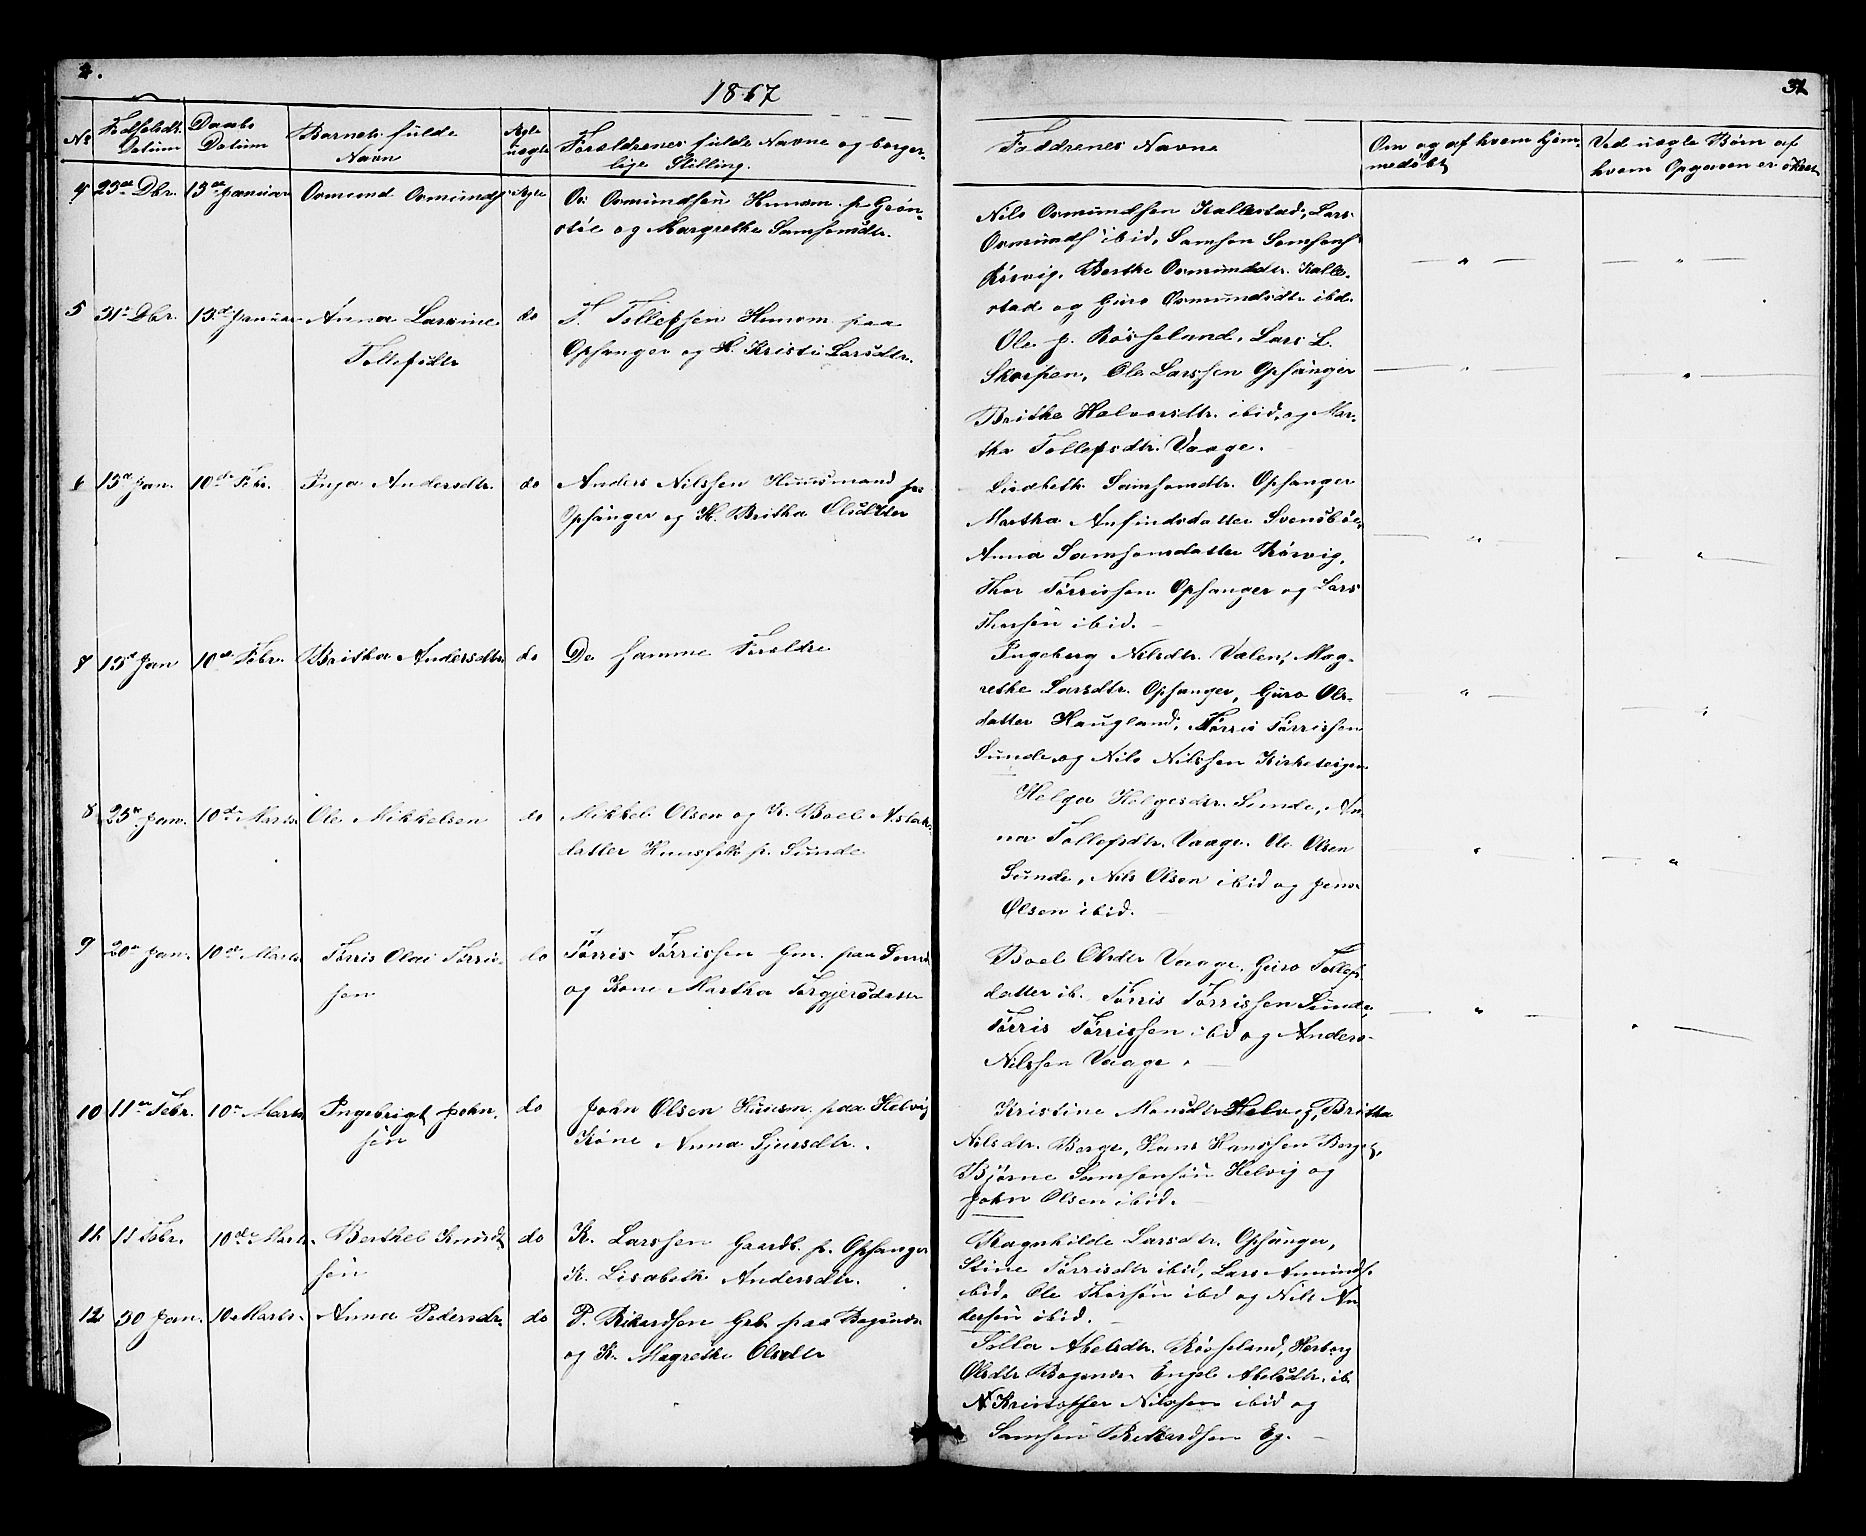 4.
1867
31
No
Fødselsdt. Datum
Daabs Datum
Barnets fulde Navn
Ægte uægte
Forældrenes fulde Navne og borger-
lige Stilling.
Faddrenes Navne
Om og af hvem hjem-
medøbt
Ved uægte Børn af
hvem Opgaven er sket
4 25de Dbr. 13de Januar Osmund Osmunds Ægte Os. Osmundsen Huusm. p. Grøn-
støl og Margrethe Samsonsdtr.
Nils Osmundsen Kallestad, Lars
Osmunds ibid, Samson Samsons
Røsvig, Berthe Osmundsdtr. Kalle-
stad og Guro Osmundsdtr. ibd.
5 31te Dbr. 13de Januar Anna Larsine do T. Tollefsen Huusm. paa
Tollefsdtr Opsanger og H. Kristi Larsdtr.
Ole p. Røsseland, Lars L.
Skorpen, Ole Larssen Opsanger
Britha Halvorsdtr. ibid, og Mar-
tha Tollefsdtr. Vaage.
6 13de Jan. 10de Febr. Inga Andersdtr. do Anders Nilssen Huusmand paa
Opsanger og K. Britha Olsdatter
Lisabeth Samsonsdtr. Opsanger
Martha Anfindsdatter Svensbøe,
Anna Samsonsdatter Røsvig,
Thor Tørrissen Opsanger og Lars
Thorsen ibid.
7 13de Jan 10de Febr. Britha Andersdtr do De samme Forældre
Ingeborg Nilsdtr. Valen, Mag-
rethe Larsdtr. Opsanger, Guro Ols-
datter Haugland, Tørris Tørrissen
Sunde og Nils Nilssen Kirketeigen
8 25de Jan. 10de Marts Ole Mikkelsen do Mikkel Olsen og K. Boel Aslak-
datter Huusfolk p. Sunde
Helga Helgesdtr. Sunde, An-
na Tollefsdtr. Vaage. Ole Olsen
Sunde, Nils Olsen ibid og Jens
Olsen ibid.
9 20de Jan. 10de Marts Tørris Olai Tørris- do Tørris Tørrissen Gm. paa Sunde
sen og Kone Martha Torgjersdatter
Boel Olsdtr Vaage, Guro Tollefs
datter ib. Tørris Tørrissen Sunde,
Tørris Tørrissen ibid og Anders
Nilssen Vaage.
10 11te Febr. 10de Marts Ingebrigt John- do John Olsen Huusm. paa Helvig
sen Kone Anna Sjursdtr.
Kristine Monsdtr Helvig, Britha
Nilsdtr. Berge, Hans Hanssen Berge,
Bjørne Samsonsen Helvig og
John Olsen ibid.
11. 11 Febr. 10de Marts. Berthel Knud- do K. Larssen Gaardb. p. Opsanger
sen K. Lisabeth Andersdtr.
Ragnhilde Larsdtr. Opsanger,
Stine Tørrisdtr ibid, Lars Amunds.
ibid, Ole Thorsen ibid og Nils An
dersen ibid.
12 30 Jan. 10 Marts. Anna Pedersdtr do P. Rikardsen Grb. paa Bogsnæs
og K. Magrethe Olsdtr
Sella Abelsdtr. Røsseland, Herborg
Olsdtr Bogsnæs Engele Abelsdtr. ib.
Kristoffer Nilssen ibid og
Samson Rikardsen Eg.